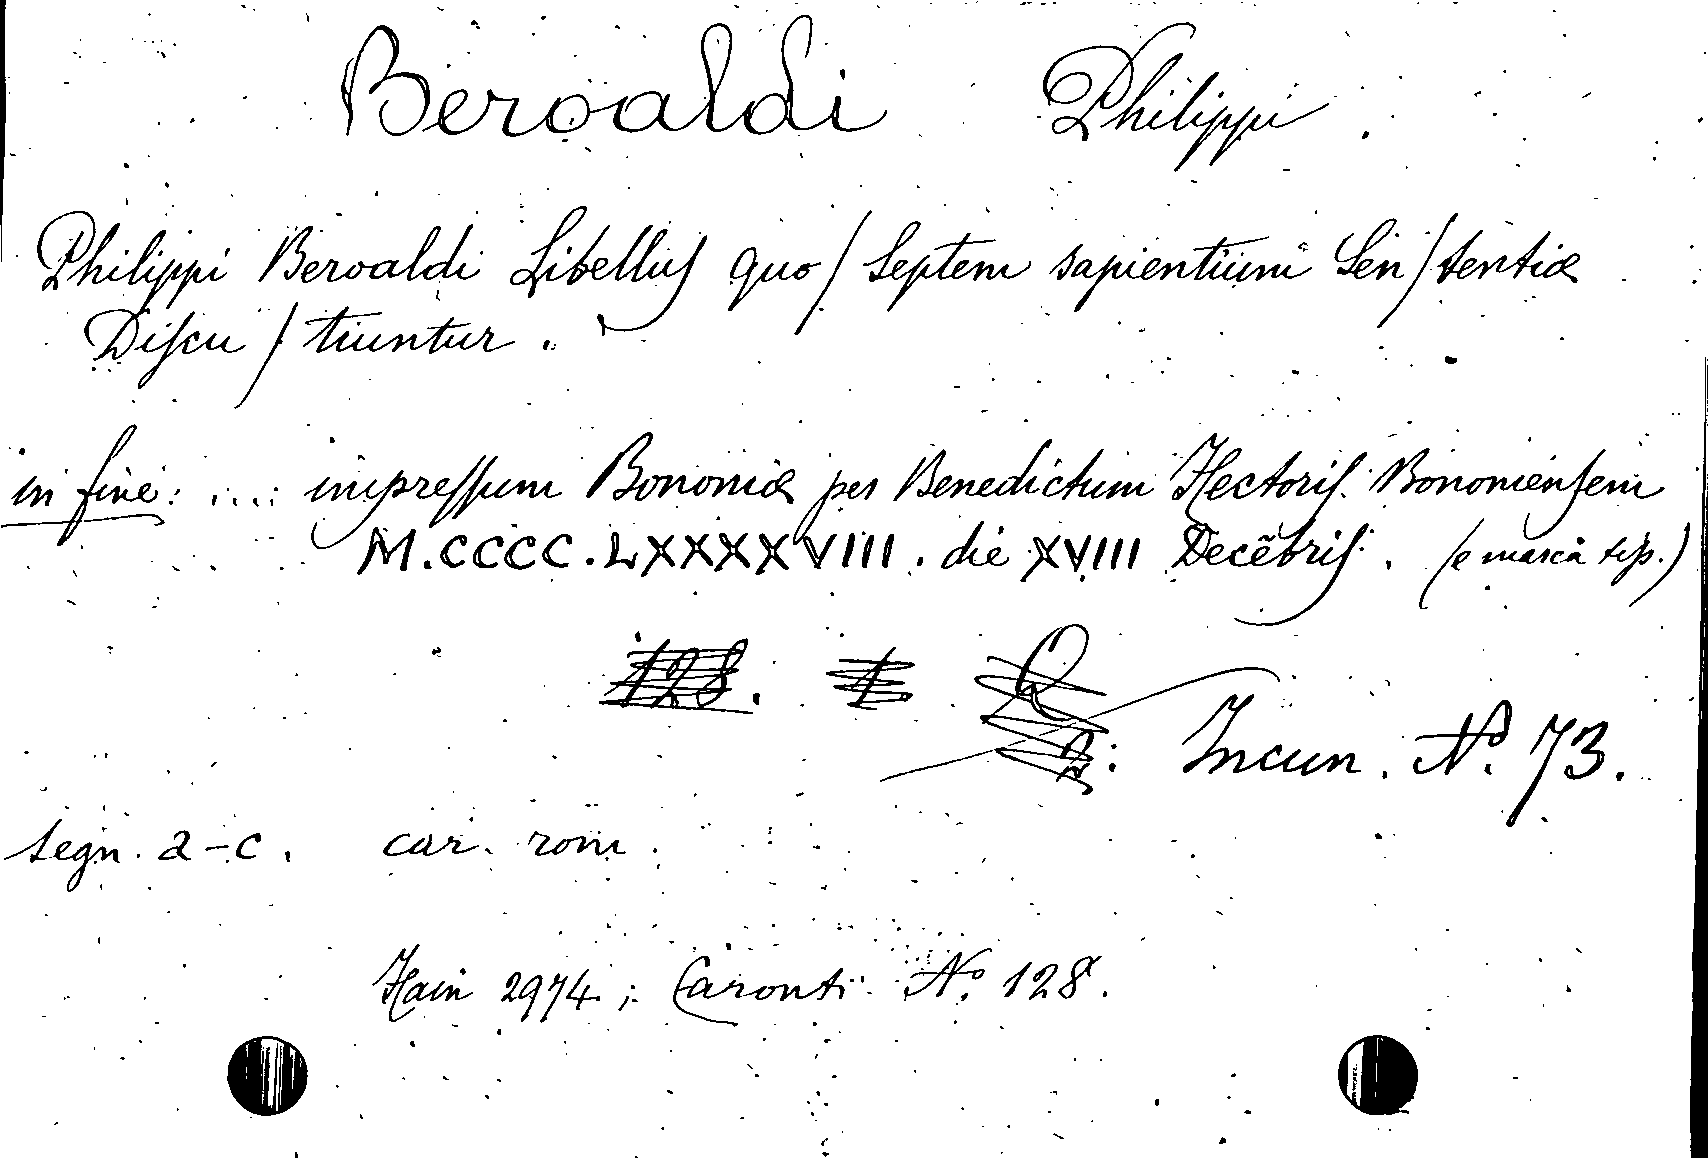 Beroaldi Philippi.
Philippi Beroaldi Libelluſ quo / Septem sapientium Sen / tentiæ
Diſcu / tiuntur.
in fine: .... impreſſum Bononiæ per Benedictum Hectoriſ Bononienſem
M.CCCC.LXXXXVIII. die XVIII Decẽbriſ. (e marca tip.)
128. 1. Q
2: Incun. No. 73.
segn. a-c. car. rom.
Hain 2974; Caronti No. 128.